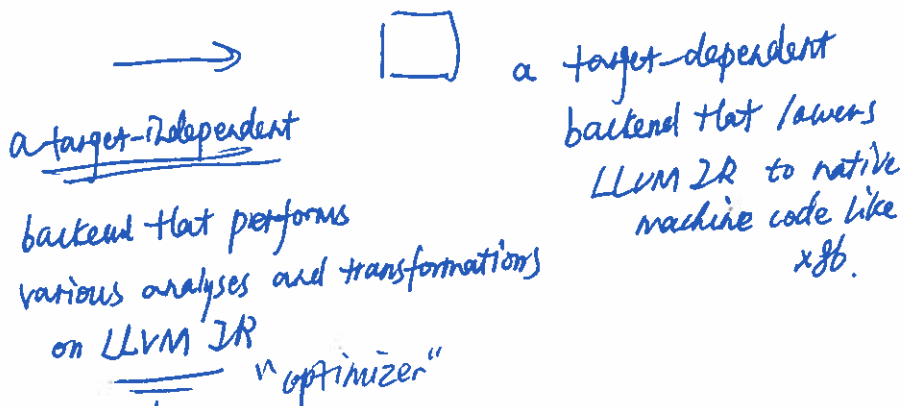 a target-independent
backend that performs
various analyses and transformations
on LLVM IR
"optimizer"
a target-dependent
backend that lowers
LLVM IR to native
machine code like
x86.